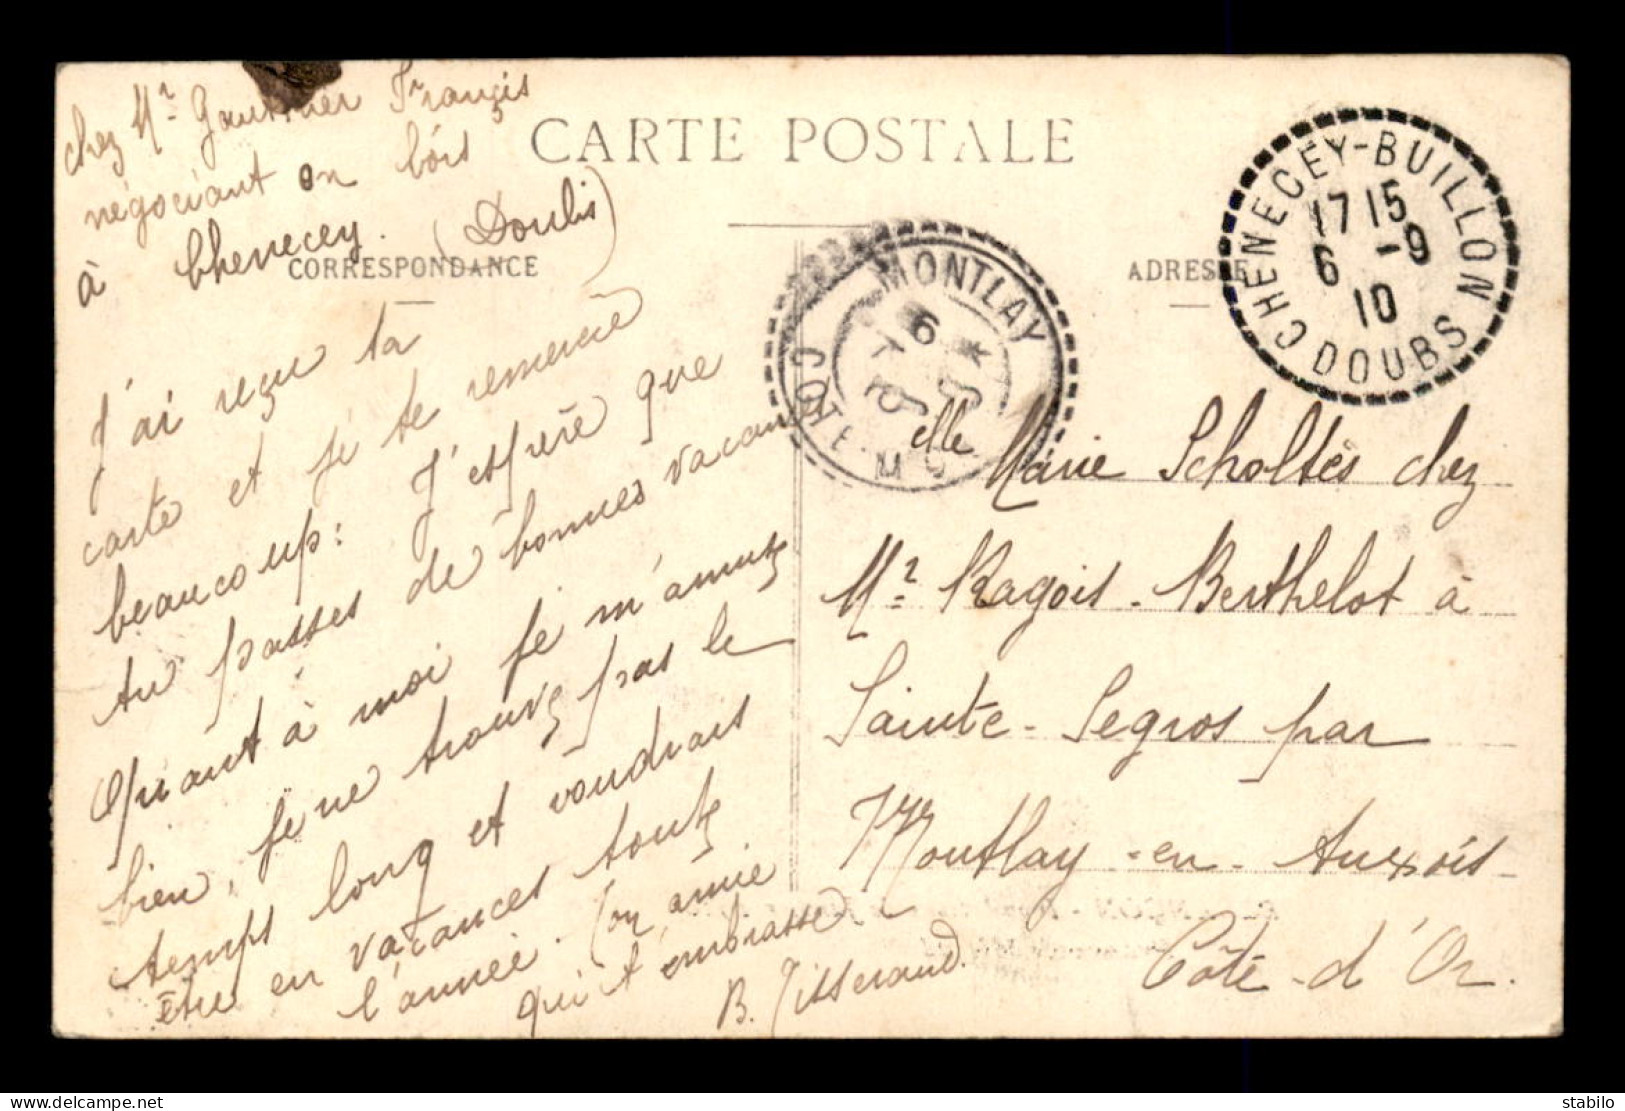 CARTE POSTALE
chez Mr Gauthier Françis
négociant en bois
à Chenecey. (Doubs)
CORRESPONDANCE
J'ai reçu ta
carte et je te remercie
beaucoup: J'espère que
tu passes de bonnes vacances
Quant à moi je m'amuse
bien, je ne trouve pas le
temps long et voudrais
être en vacances toute
l'année. Ton amie
qui t'embrasse
B. Tisserand
ADRESSE
CHENECEY-BUILLON
17 15
6 -9
10
DOUBS
MONTLAY
COTE
Elle Marie Scholtès chez
Mr Ragois-Berthelot à
Sainte-Segros par
Montlay-en-Auxois
Côte-d'Or.
stabilo